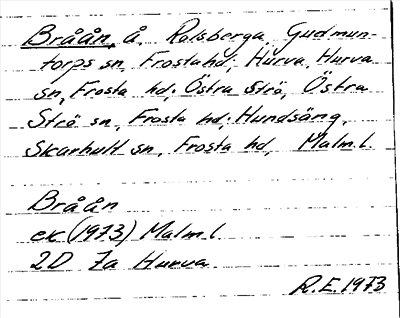 Bråån, å. Rolsberga, Gudmun-
torps sn, Frosta hd; Hurva, Hurva
sn, Frosta hd; Östra Strö, Östra
Strö sn, Frosta hd; Hundsäng,
Skarhult sn, Frosta hd, Malm.l.
Bråån
ek (1973) Malm.l.
2D 7a Hurva
R.E. 1973